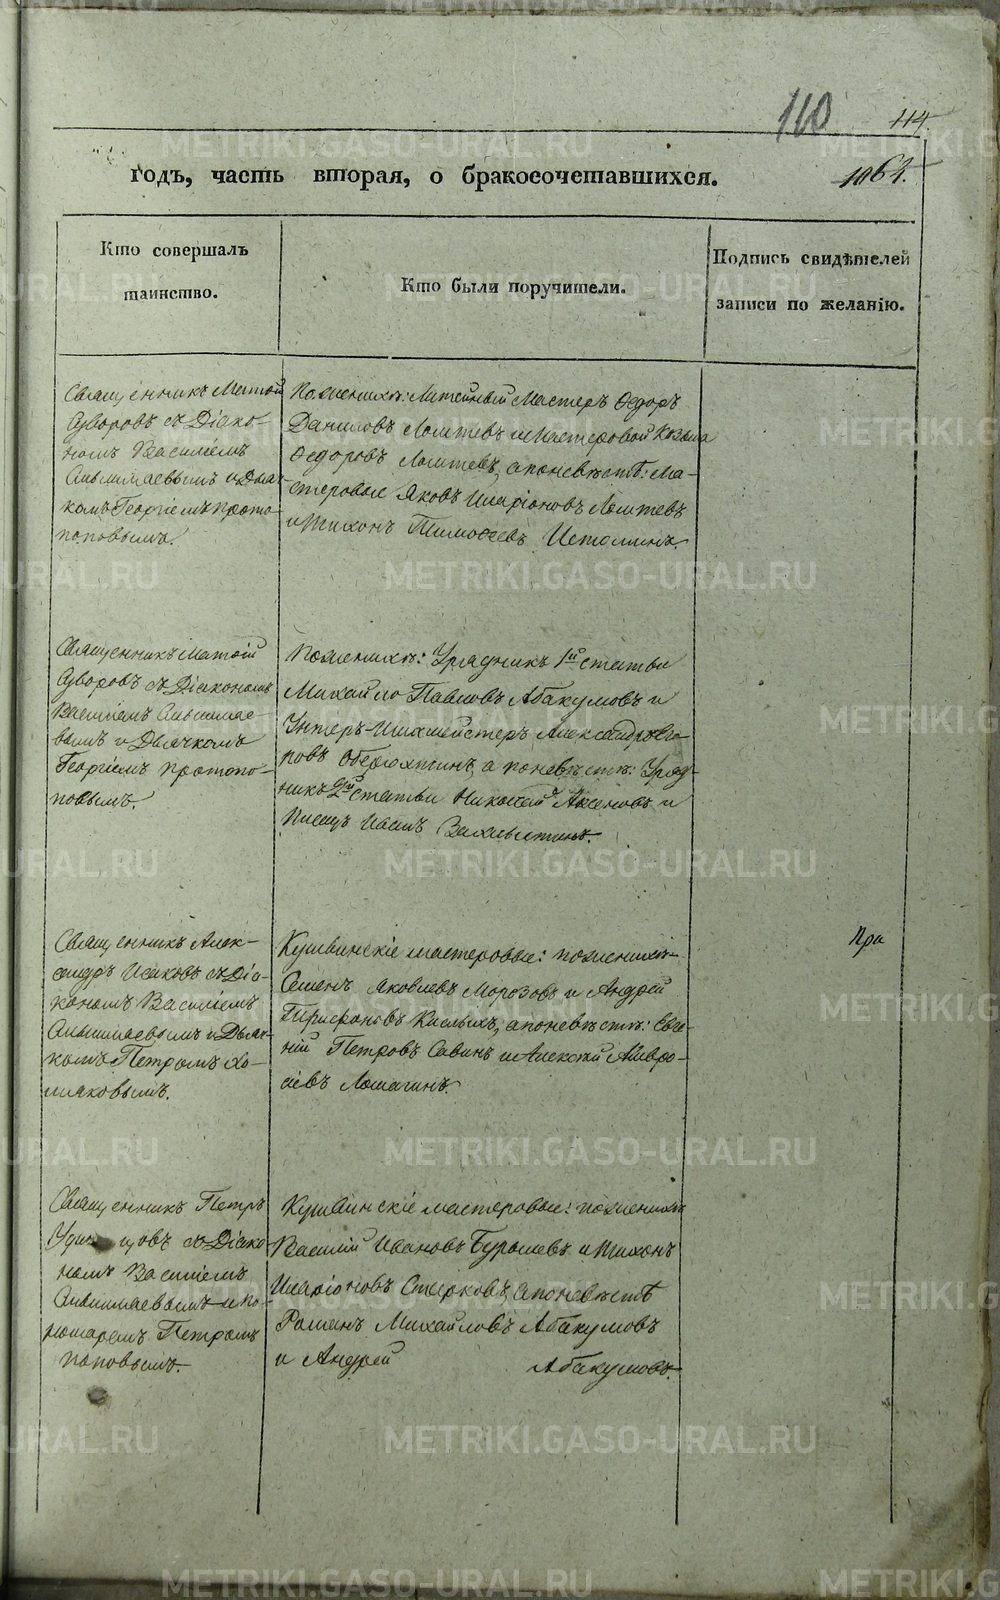 110
114.
годъ, часть вторая, о бракосочетавшихся.
1064.
Кто совершалъ
таинство.
Кто были поручители.
Подпись свидѣтелей
записи по желанію.
Священникъ Матѳій
Суворовъ съ Діако-
номъ Василіемъ
и Дьяч-
комъ Георгіемъ Прото-
поповымъ.
По женихѣ: Литейный Мастеръ Ѳедоръ
Даниловъ Лоштевъ и Мастеровой Козьма
Ѳедоровъ Лоштевъ, а по невѣстѣ: Ма-
стеровые Яковъ Иларіоновъ Лоштевъ
и Тихонъ Тимоѳеевъ Истоминъ.
Священникъ Матѳій
Суворовъ съ Діакономъ
Василіемъ
и Дьячкомъ
Георгіемъ Протопо-
повымъ.
По женихѣ: Урядникъ 1й статьи
Михайло Павловъ Абакумовъ и
Унтеръ-Шихмейстеръ Александръ
а по невѣстѣ: Уряд-
никъ 2й статьи Николай Аксеновъ и
Писецъ
Священникъ Алек-
сандръ Исаковъ съ Діа-
кономъ Василіемъ
и Дьяч-
комъ Петромъ Хо-
мяковымъ.
Кушвинскіе мастеровые: по женихѣ
Семенъ Яковлевъ Морозовъ и Андрей
Кислыхъ, а по невѣстѣ: Евге-
ній Петровъ Савинъ и Алексѣй Амвро-
сіевъ Ломагинъ.
При
Священникъ Петръ
съ Діако-
номъ Василіемъ
и По-
номаремъ Петромъ
Поповымъ.
Кушвинскіе мастеровые: по женихѣ
Василій Ивановъ Бурашевъ и Тихонъ
Иларіоновъ Стерховъ, а по невѣстѣ
Романъ Михайловъ Абакумовъ
и Андрей Абакумовъ.
METRIKI.GASO-URAL.RU